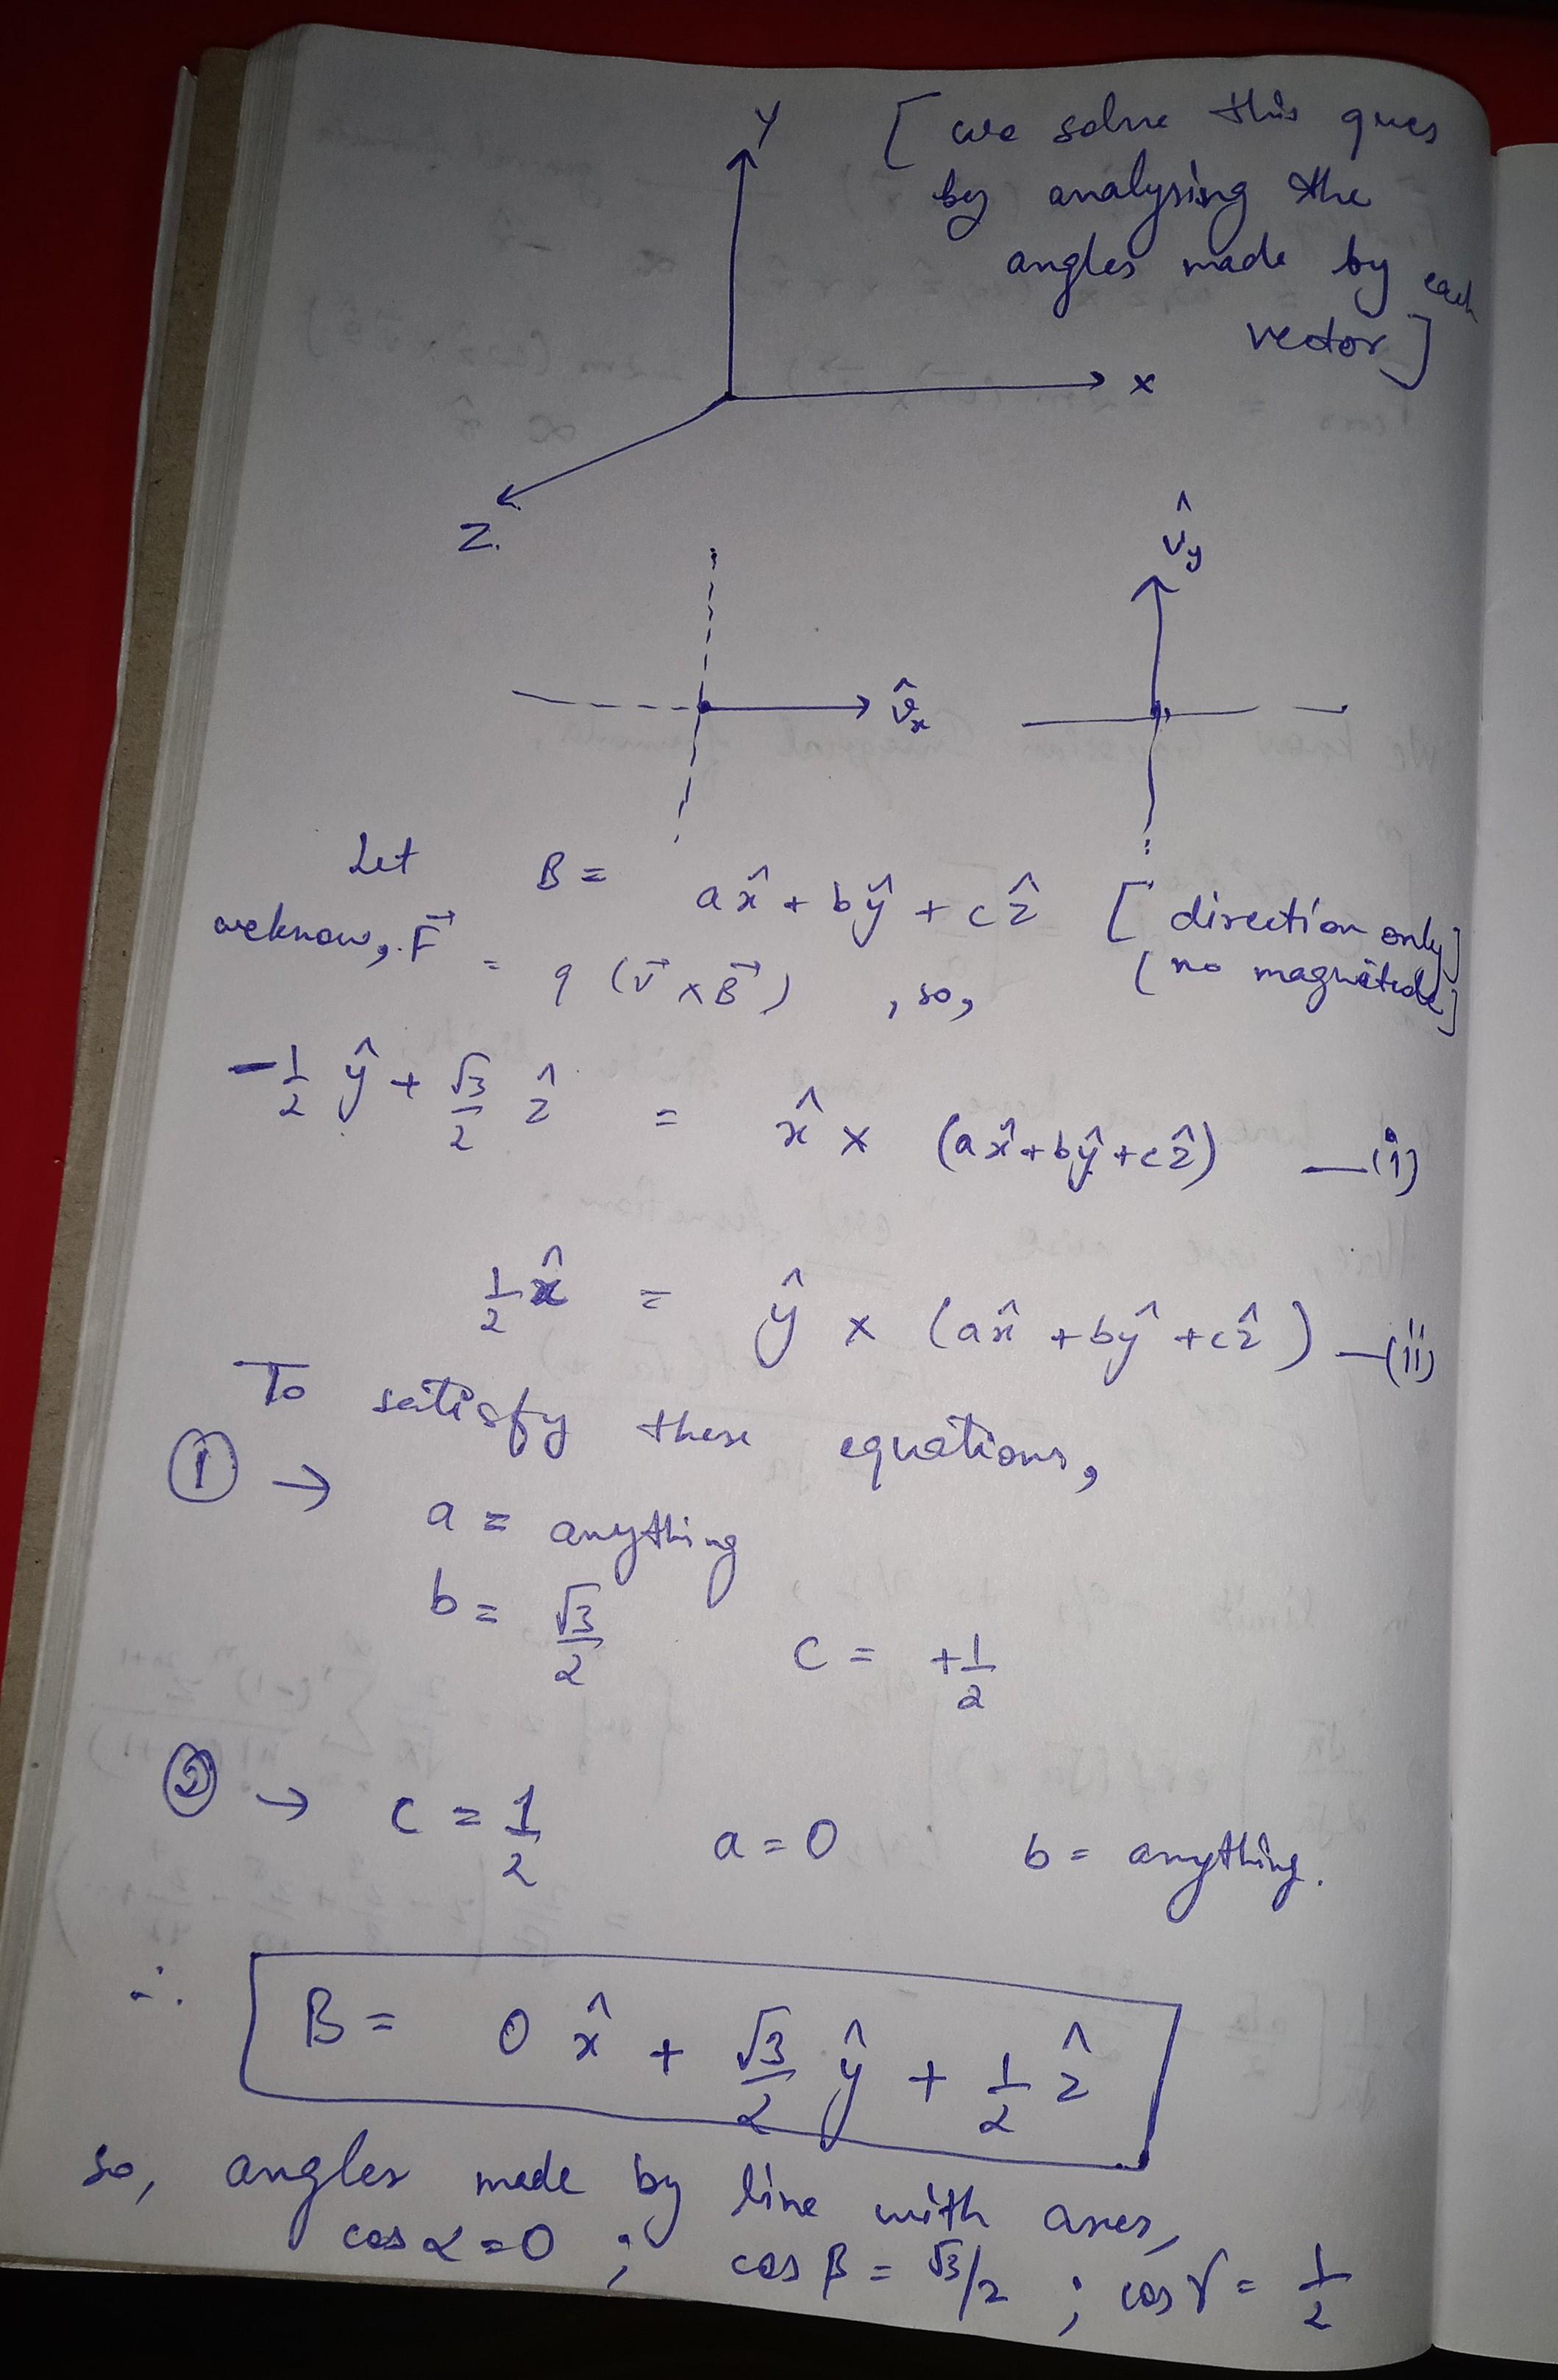 Y [ we solve this ques
by analysing the
angles made by each
vector ]
x
Z.
v̂y
v̂x
Let B = ax̂ + bŷ + cẑ [ direction only ]
we know, F⃗ = q (v⃗ × B⃗) , so, ( no magnitude ]
-1/2 ŷ + √3/2 ẑ = x̂ × (ax̂ + bŷ + cẑ) —(i)
1/2 x̂ = ŷ × (ax̂ + bŷ + cẑ) —(ii)
To satisfy these equations,
① → a = anything
b = √3/2 c = +1/2
② → c = 1/2 a = 0 b = anything.
∴ B = 0 x̂ + √3/2 ŷ + 1/2 ẑ
so, angles made by line with axes,
cos α = 0 ; cos β = √3/2 ; cos γ = 1/2